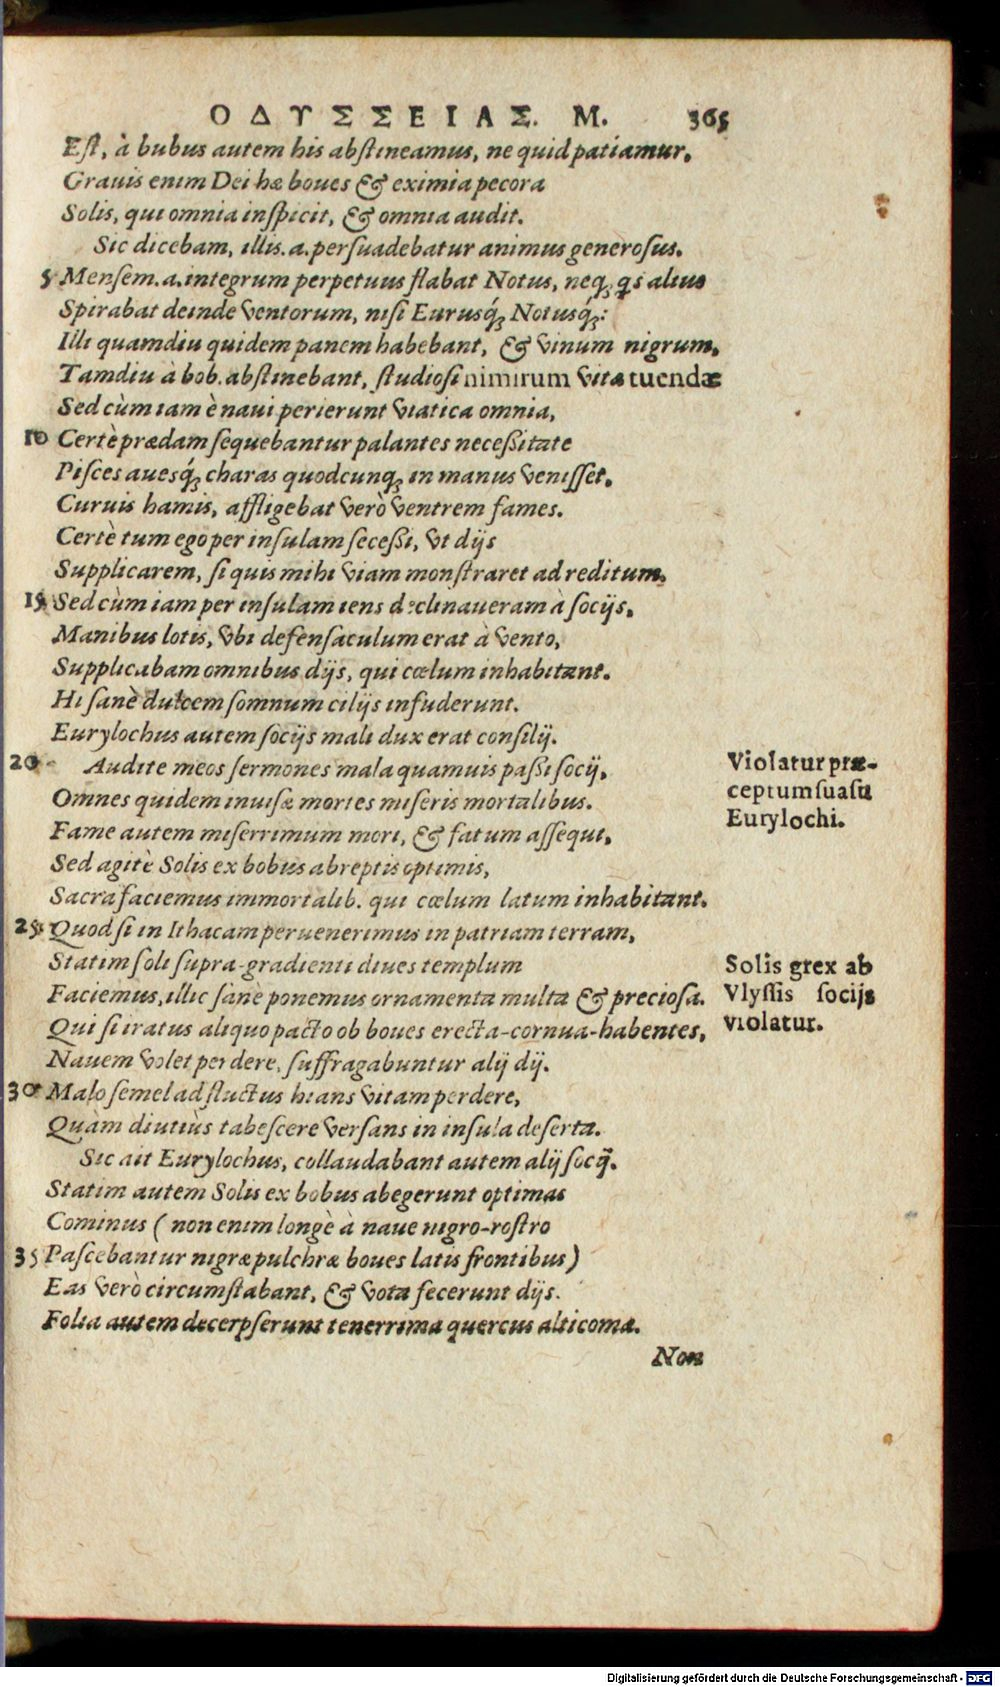 ΟΔΥΣΣΕΙΑΣ. Μ. 365
Eſt, à bubus autem his abſtineamus, ne quid patiamur.
Grauis enim Dei hæ boues & eximia pecora
Solis, qui omnia inſpicit, & omnia audit.
Sic dicebam, illis. a. perſuadebatur animus generoſus.
5 Menſem. a. integrum perpetuus flabat Notus, neq; qs alius
Spirabat deinde ventorum, niſi Eurusq́; Notusq́;:
Illi quamdiu quidem panem habebant, & vinum nigrum,
Tamdiu à bob. abſtinebant, ſtudioſi nimirum vitæ tuendæ
Sed cùm iam è naui perierunt viatica omnia,
10 Certè prædam ſequebantur palantes neceßitate
Piſces auesq́; charas quodcunq; in manus veniſſet,
Curuis hamis, affligebat verò ventrem fames.
Certè tum ego per inſulam ſeceßi, vt dijs
Supplicarem, ſi quis mihi viam monſtraret ad reditum.
15 Sed cùm iam per inſulam iens declinaueram à ſocijs,
Manibus lotis, vbi defenſaculum erat à vento,
Supplicabam omnibus dijs, qui cœlum inhabitant.
Hi ſanè dulcem ſomnum cilijs infuderunt.
Eurylochus autem ſocijs mali dux erat conſilij.
20 Audite meos ſermones mala quamuis paßi ſocij,
Omnes quidem inuiſæ mortes miſeris mortalibus.
Fame autem miſerrimum mori, & fatum aſſequi,
Sed agitè Solis ex bobus abreptis optimis,
Sacra faciemus immortalib. qui cœlum latum inhabitant.
25 Quod ſi in Ithacam peruenerimus in patriam terram,
Statim ſoli ſupra-gradienti diues templum
Faciemus, illic ſanè ponemus ornamenta multa & precioſa.
Qui ſi iratus aliquo pacto ob boues erecta-cornua-habentes,
Nauem volet perdere, ſuffragabuntur alij dij.
30 Malo ſemel ad fluctus hians vitam perdere,
Quàm diutiùs tabeſcere verſans in inſula deſerta.
Sic ait Eurylochus, collaudabant autem alij ſocij.
Statim autem Solis ex bobus abegerunt optimas
Cominus (non enim longè à naue nigro-roſtro
35 Paſcebantur nigræ pulchræ boues latis frontibus)
Eas verò circumſtabant, & vota fecerunt dijs.
Folia autem decerpſerunt tenerrima quercus alticomæ.
Non
Violatur præ-
ceptum ſuaſu
Eurylochi.
Solis grex ab
Vlyſſis ſocijs
violatur.
Digitalisierung gefördert durch die Deutsche Forschungsgemeinschaft - DFG